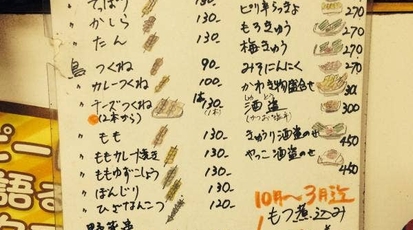 〃 てっぽう 130-
〃 かしら 130-
〃 たん 130-
鳥 つくね 90-
〃 カレーつくね 100-
〃 チーズつくね 130-
(2本から) (1本)
〃 もも 130-
〃 ももカレー焼き 130-
〃 ももゆずこしょう 130-
〃 ぼんじり 130-
〃 ひざなんこつ 120-
ピリ辛らっきょ 270
もろきゅう 270
梅きゅう 270
みそにんにく 270
かわき物盛合せ
酒盗 300
きゅうり酒盗のせ 450
やっこ酒盗のせ 450
10月〜3月迄
もつ煮込み
ビー
語